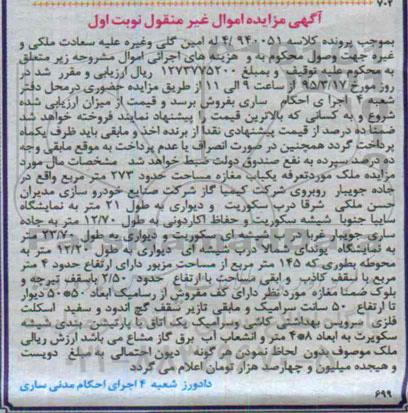 ۷۰۲
آگهی مزایده اموال غیر منقول نوبت اول
بموجب پرونده کلاسه ۹۴۰۰۵۱/ ۴ له امین گلی وغیره علیه سعادت ملکی و
غیره جهت وصول محکوم به و هزینه های اجرائی اموال مشروحه زیر متعلق
به محکوم علیه توقیف و بمبلغ ۱۲۷۳۷۷۵۲۰۰ ریال ارزیابی و مقرر شد در
روز مورخ ۹۵/۳/۱۷ از ساعت ۹ الی ۱۱ از طریق مزایده حضوری درمحل دفتر
شعبه ۴ اجرا ی احکام ساری بفروش برسد و قیمت از میزان ارزیابی شده
شروع و به کسانی که بالاترین قیمت را پیشنهاد نمایند فروخته خواهد شد
ضمنا ده درصد از قیمت پیشنهادی نقدا از برنده اخذ و مابقی باید ظرف یکماه
پرداخت گردد همچنین در صورت انصراف یا عدم پرداخت به موقع مابقی وجه
ده درصد سپرده به نفع صندوق دولت ضبط خواهد شد مشخصات مال مورد
مزایده ملک موردتعرفه یکباب مغازه مساحت حدود ۲۷۳ متر مربع واقع در
جاده جویبار روبروی شرکت کیسا گاز شرکت صنایع خودرو سازی مدیران
حسن ملکی شرقا درب سکوریت و دیواری به طول ۲۱ متر به نمایشگاه
سایپا جنوبا شیشه سکوریت و حفاظ اکاردئونی به طول ۱۲/۷۰ متر به جاده
ساری جویبار غربا درب شیشه ای سکوریت و دیواری به طول ۲۳/۷۰ متر
به نمایشگاه یونای شمالا درب شیشه ای دیواری به طول ۱۲/۲۰ متر به
محوطه بطوری که ۱۴۵ متر مربع از مساحت مزبور دارای ارتفاع حدود ۴ متر
مربع با سقف کاذب و ابقی مساحت با ارتفاع حدود ۲/۵۰ باسقف تیرچه و
بلوک ضمنا مغازه مورد نظر دارای کف مفروش از سرامیک ابعاد ۵۰*۵۰ دیوار
تا ارتفاع ۵۰ سانت سرامیک و مابقی تازیر سقف گچ اندود و سفید اسکلت
فلزی سرویس بهداشتی کاشی وسرامیک یک اتاق با پارتیشن بندی شیشه
سکوریت به ابعاد ۸*۴ متر و انشعاب آب برق گاز مشاع می باشد ارزش ریالی
ملک موصوف بدون لحاظ نمودن هر گونه دیون احتمالی به مبلغ دویست
و هیجده میلیون و چهارصد هزار تومان اعلام می گردد
دادورز شعبه ۴ اجرای احکام مدنی ساری
۶۹۹